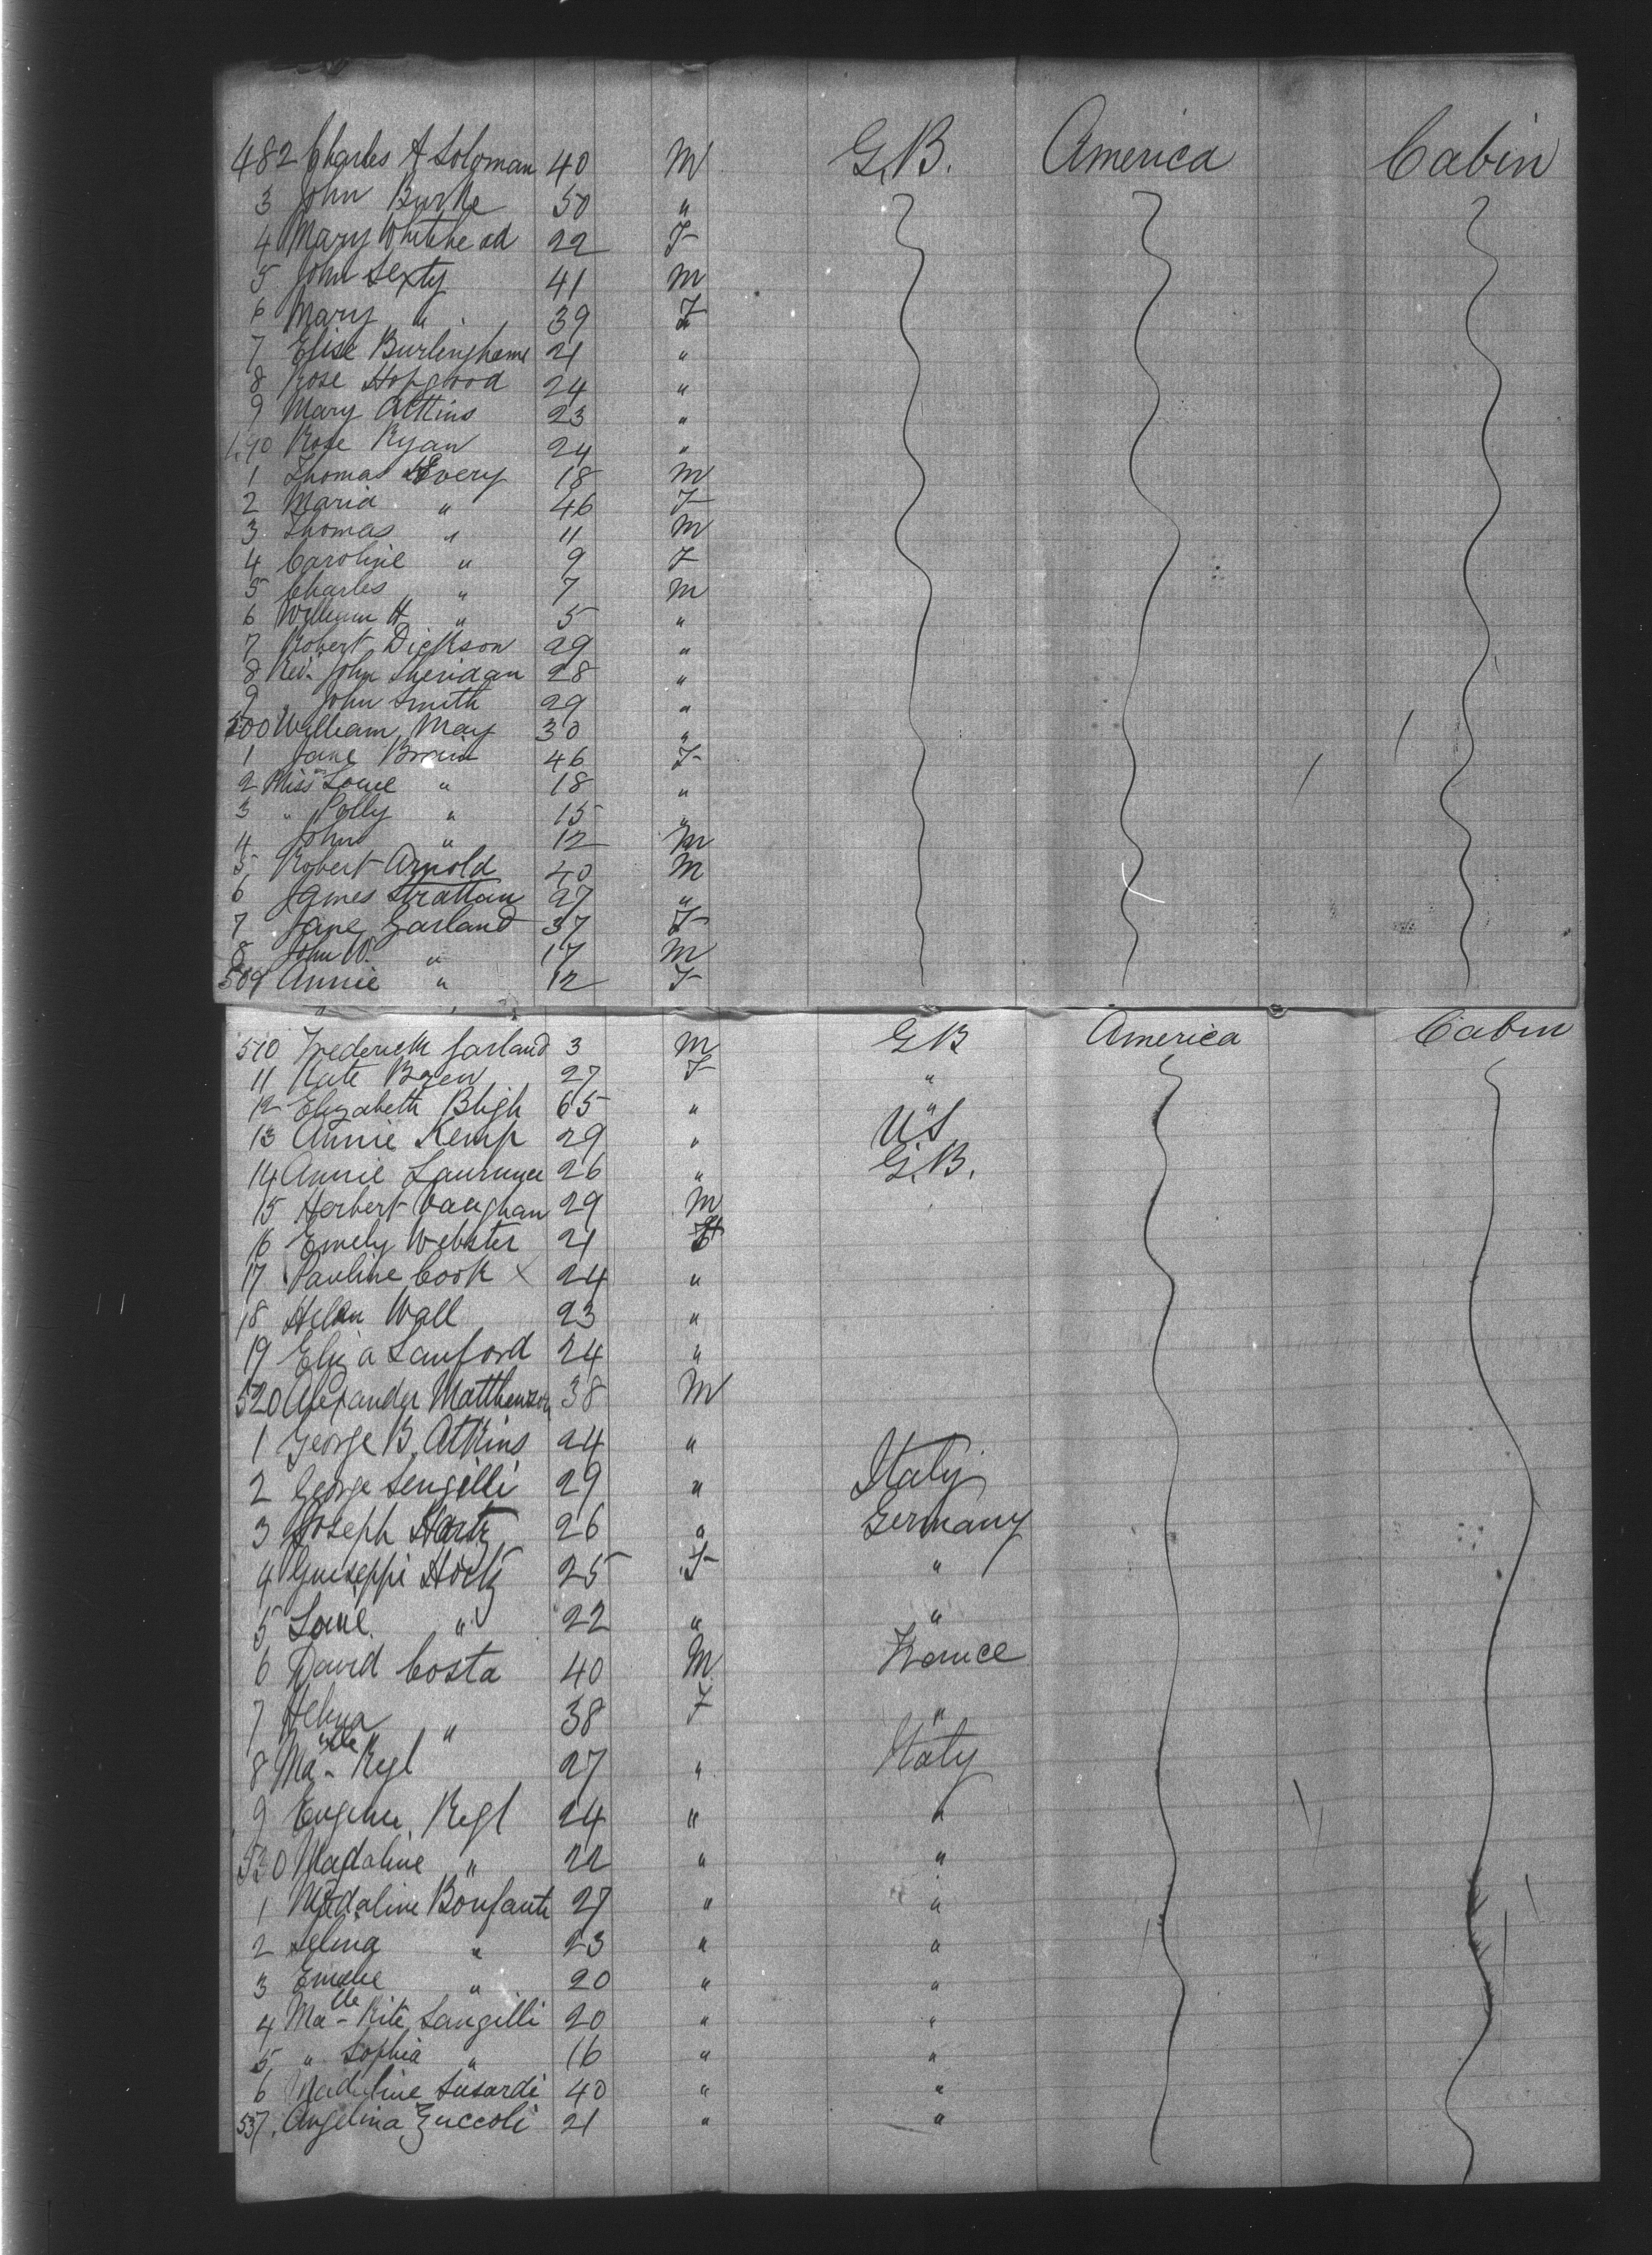 482 Charles A Soloman 40 M G.B. America Cabin
3 John Burke 50 "
4 Mary Whitehead 22 F
5 John Sexty 41 M
6 Mary " 39 F
7 Elise Burlinghame 21 "
8 Rose Hopgood 24 "
9 Mary Atkins 23 "
490 Rose Ryan 24 "
1 Thomas Every 18 M
2 Maria " 46 F
3 Thomas " 11 M
4 Caroline " 9 F
5 Charles " 7 M
6 William H " 5 "
7 Robert Dickson 29 "
8 Rev. John Sheridan 28 "
9 John Smith 29 "
500 William May 30 "
1 Jane 46 F
2 Miss Louie " 18 "
3 " Polly " 15 "
4 John " 12 M
5 Robert Arnold 40 M
6 James Strattan 27 "
7 Jane Garland 37 F
8 John W. " 17 M
509 Annie " 12 F
510 Frederick Garland 3 M GB America Cabin
11 Kate 27 F "
12 Elizabeth Bligh 65 " "
13 Annie Kemp 29 " US
14 Annie 26 " G.B.
15 Herbert Vaughan 29 M
16 Emely Webster 21 F
17 Pauline Cook X 24 "
18 Helen Wall 23 "
19 Eliza Sanford 24 "
520 Alexander Matthewson 38 M
1 George B. Atkins 24 "
2 George Sengilli 29 " Italy
3 Joseph Hortz 26 " Germany
4 Guiseppi Hortz 25 F "
5 Louie " 22 " "
6 David Costa 40 M France
7 " 38 F "
8 Ma-lle Regl 27 " Italy
9 Regl 24 " "
530 Madaline " 22 " "
1 Madaline Bonfante 27 " "
2 Selina " 23 " "
3 Emelie " 20 " "
4 Ma-lle Rite Sangilli 20 " "
5 " Sophia " 16 " "
6 Madeline Susardi 40 " "
537. Angelina Zuccoli 21 " "